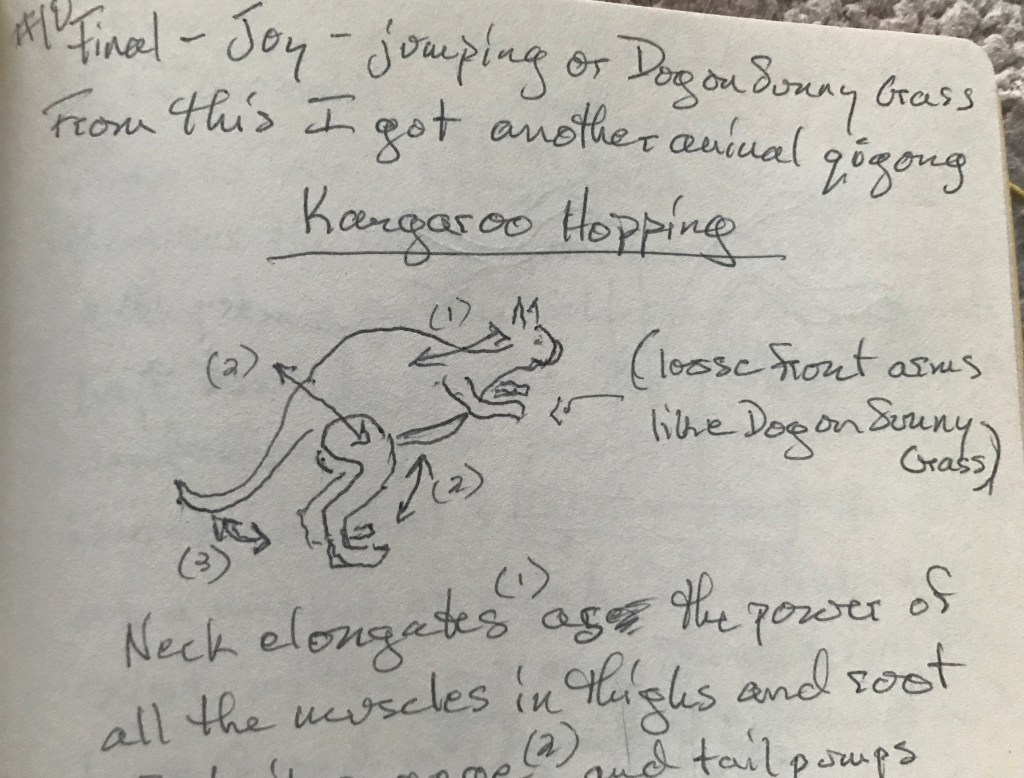 #10 Final - Joy - jumping or Dog on Sunny Grass
From this I got another animal qigong
Kangaroo Hopping
(1)
(2)
(loose front arms
like Dog on Sunny
Grass)
(2)
(3)
Neck elongates (1) as the power of
all the muscles in thighs and root
(2) and tail pumps